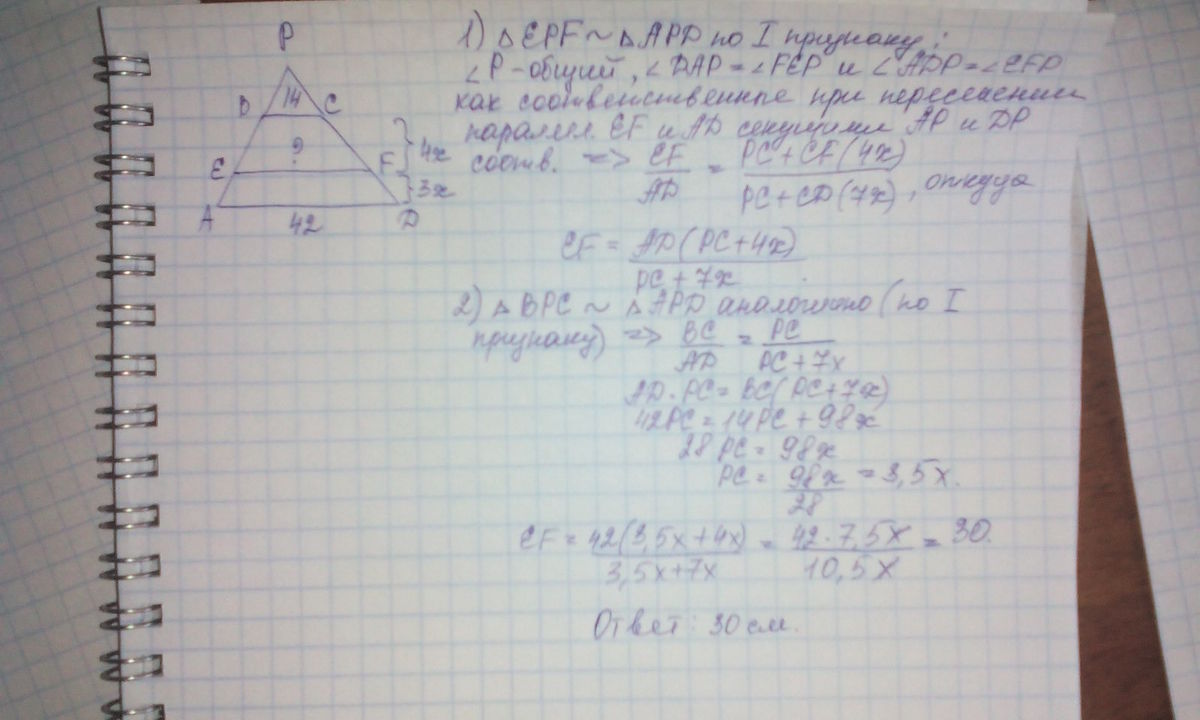 P
14
B C
?
E F
4x
3x
A D
42
1) △EPF ~ △APD по I признаку:
∠P - общий, ∠DAP = ∠FEP и ∠ADP = ∠EFP
как соответственные при пересечении
паралл. EF и AD секущими AP и DP
соотв. => EF/AD = PC + CF(4x)/PC + CD(7x), откуда
EF = AD(PC + 4x)/PC + 7x.
2) △BPC ~ △APD аналогично (по I
признаку) => BC/AD = PC/PC + 7x
AD · PC = BC(PC + 7x)
42PC = 14PC + 98x
28PC = 98x
PC = 98x/28 = 3,5x.
EF = 42(3,5x + 4x)/3,5x + 7x = 42 · 7,5x/10,5x = 30.
Ответ: 30 см.